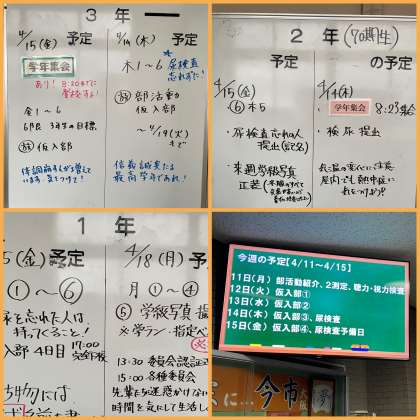 3 年
4/15(金) 予定
学年集会
あり! 8:20までに
登校せよ!
金1〜6
仮入部
体調崩す人が増えて
います 気をつけて!
4/14(木) 予定
木1〜6
尿検査
忘れずに!
部活動
仮入部
〜4/19(火)
まで
信義誠実たる
最高学年であれ!
2 年 (70期生)
4/15(金) 予定
⑥木5
・尿検査忘れの人
提出
・来週学級写真
正装
4/14(木) の予定
学年集会 8:25
・検尿提出
1 年
5(金) 予定
①〜⑥
を忘れた人は
持ってくること!
入部 4日目 17:00
完全下校
4/18(月) 予定
月①〜④
⑤学級写真
※学ラン・指定
13:30 委員会認証
15:00 各種委員会
先輩たちに迷惑かけない
時間を気にして生活し
今週の予定【4/11〜4/15】
11日(月) 部活動紹介、2測定、聴力・視力検査
12日(火) 仮入部①
13日(水) 仮入部②
14日(木) 仮入部③、尿検査
15日(金) 仮入部④、尿検査予備日
に…
今市